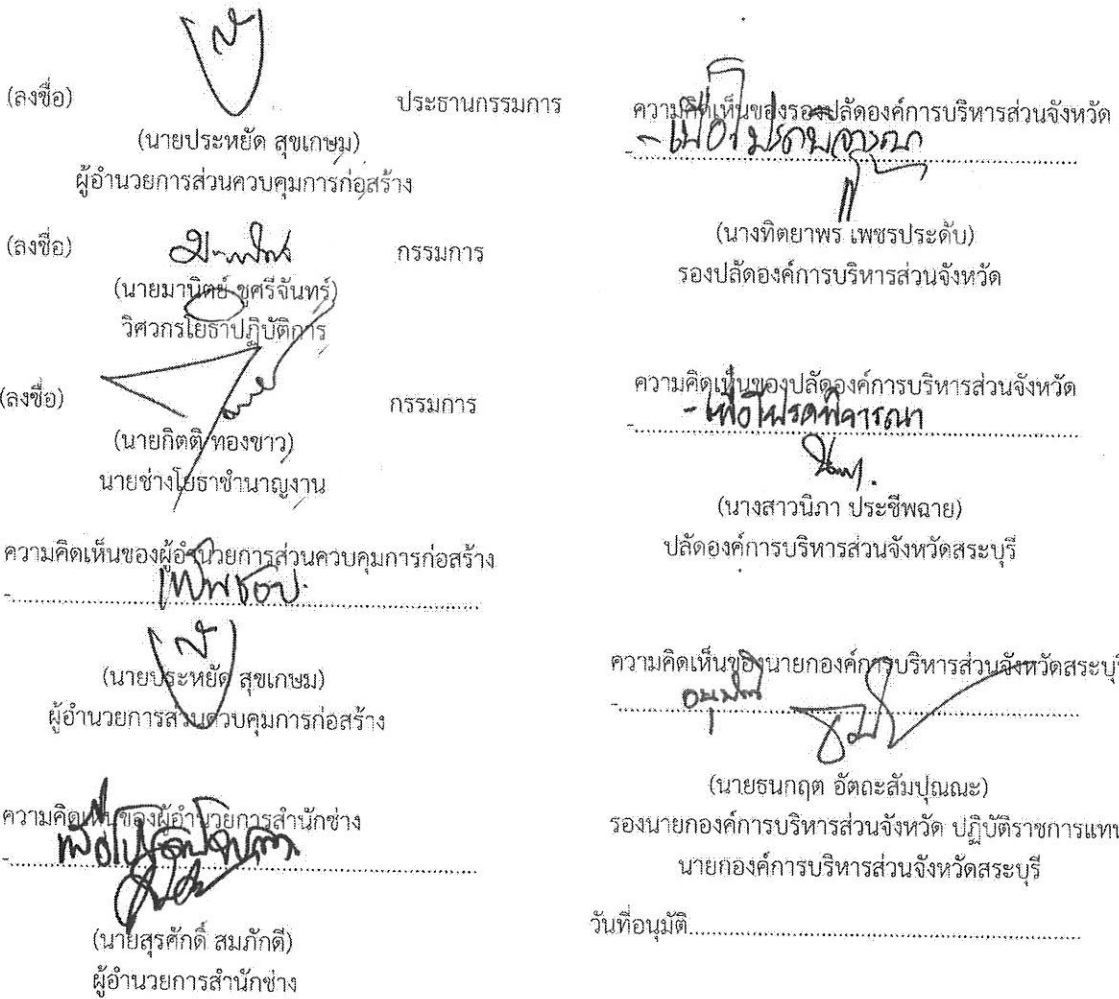 (ลงชื่อ) ประธานกรรมการ
(นายประหยัด สุขเกษม)
ผู้อำนวยการส่วนควบคุมการก่อสร้าง
(ลงชื่อ) กรรมการ
(นายมานิตย์ ชูศรีจันทร์)
วิศวกรโยธาปฏิบัติการ
(ลงชื่อ) กรรมการ
(นายกิตติ ทองขาว)
นายช่างโยธาชำนาญงาน
ความคิดเห็นของผู้อำนวยการส่วนควบคุมการก่อสร้าง
- เห็นชอบ
(นายประหยัด สุขเกษม)
ผู้อำนวยการส่วนควบคุมการก่อสร้าง
ความคิดเห็นของผู้อำนวยการสำนักช่าง
- เพื่อโปรด
(นายสุรศักดิ์ สมภักดี)
ผู้อำนวยการสำนักช่าง
ความคิดเห็นของรองปลัดองค์การบริหารส่วนจังหวัด
- เพื่อโปรดพิจารณา
(นางทิตยาพร เพชรประดับ)
รองปลัดองค์การบริหารส่วนจังหวัด
ความคิดเห็นของปลัดองค์การบริหารส่วนจังหวัด
- เพื่อโปรดพิจารณา
(นางสาวนิภา ประชีพฉาย)
ปลัดองค์การบริหารส่วนจังหวัดสระบุรี
ความคิดเห็นของนายกองค์การบริหารส่วนจังหวัดสระบุรี
- อนุมัติ
(นายธนกฤต อัตถะสัมปุณณะ)
รองนายกองค์การบริหารส่วนจังหวัด ปฏิบัติราชการแทน
นายกองค์การบริหารส่วนจังหวัดสระบุรี
วันที่อนุมัติ